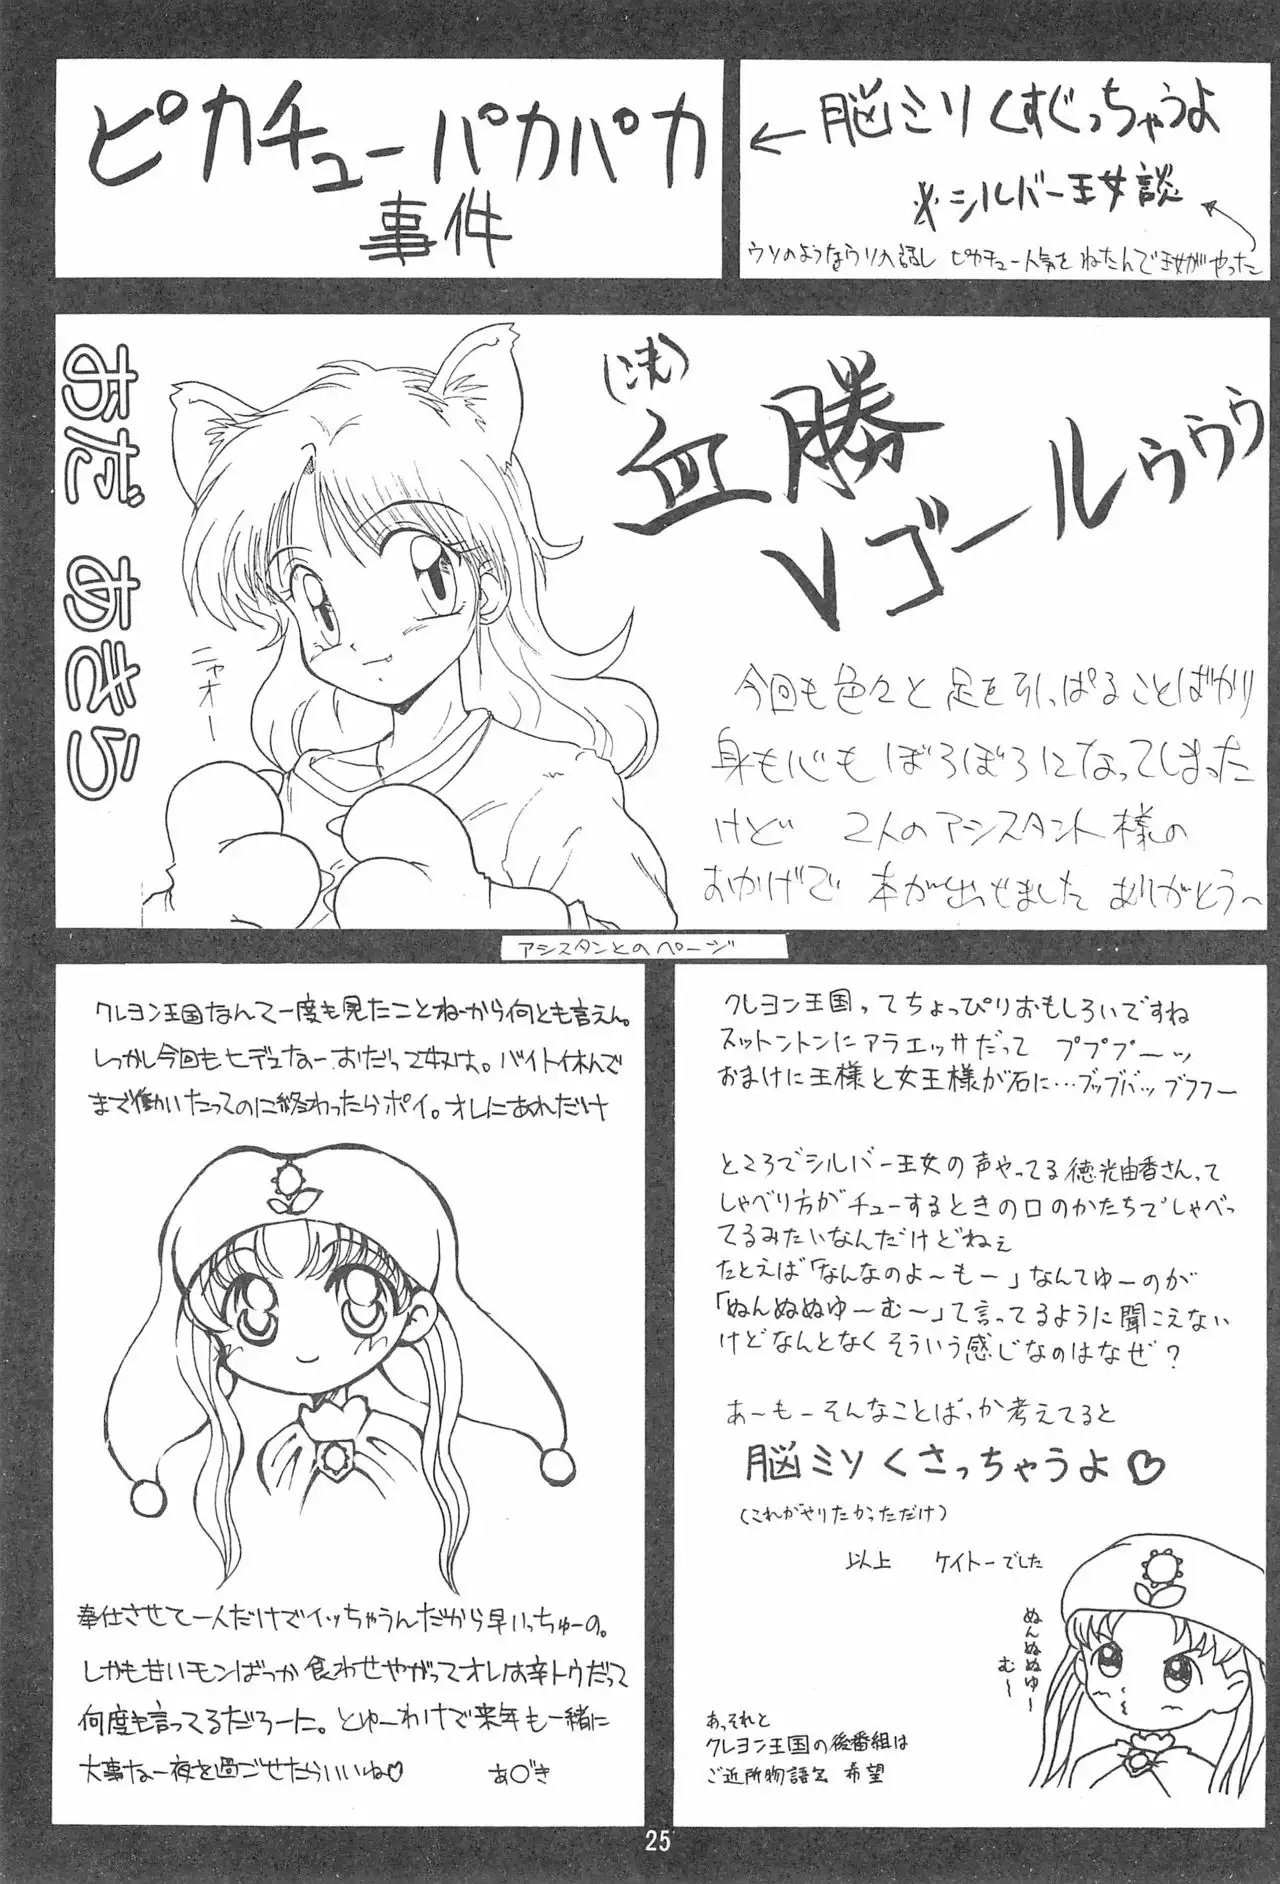 ピカチューパカパカ
事件
←脳ミソくすぐっちゃうよ
※シルバー王女談
ウソのようなウソの話し ピカチュー人気をねたんで王女がやった
おだ あきら
ニャオー
(こも)
血勝
Vゴールゥゥゥ
今回も色々と足を引っぱることばかり
身も心もぼろぼろになってしまった
けど 2人のアシスタント様の
おかげで 本が出せました ありがとう〜
アシスタンとのページ
クレヨン王国なんて一度も見たことねーから何とも言えん。
しっかし今回もヒデェなーおだって奴は。バイト休んで
まで働いたってのに終わったらポイ。オレにあれだけ
奉仕させて一人だけでイッちゃうんだから早いっちゅーの。
しかも甘いモンばっか食わせやがってオレは辛トウだって
何度も言ってるだろーに。とゆーわけで来年も一緒に
大事な一夜を過ごせたらいいね♡ あ○き
クレヨン王国ってちょっぴりおもしろいですね
スットントンにアラエッサだって プププーッ
おまけに王様と女王様が石に…ブッブバッブフフー
ところでシルバー王女の声やってる徳光由香さんって
しゃべり方がチューするときの口のかたちでしゃべっ
てるみたいなんだけどねぇ
たとえば「なんなのよ〜もー」なんてゆーのが
「ぬんぬぬゆ〜む〜」て言ってるように聞こえない
けどなんとなくそういう感じなのはなぜ?
あーもーそんなことばっか考えてると
脳ミソくさっちゃうよ♡
(これがやりたかっただけ)
以上 ケイトーでした
ぬんぬぬゆー
む〜
あっそれと
クレヨン王国の後番組は
ご近所物語2希望
25